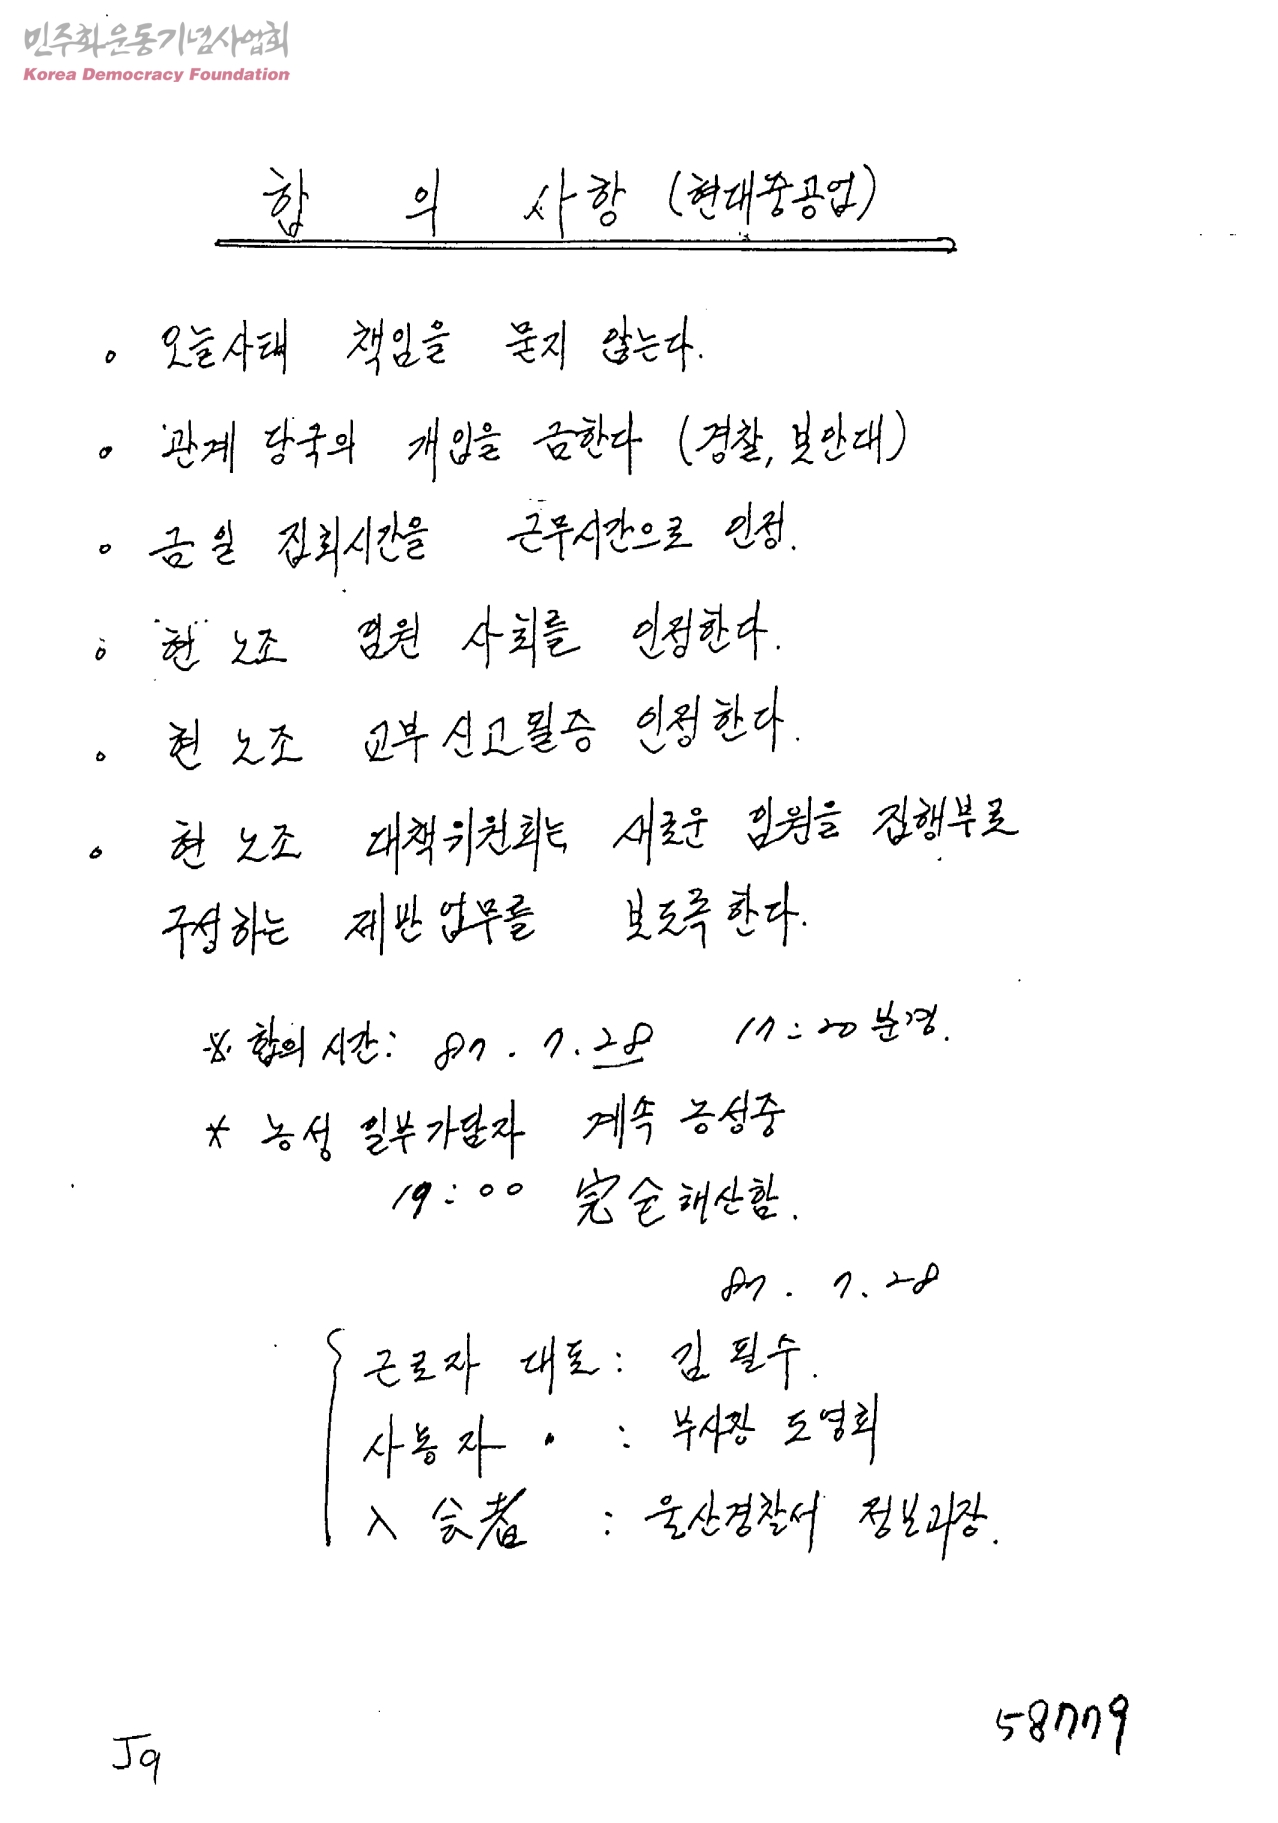 민주화운동기념사업회
Korea Democracy Foundation
합 의 사항 (현대중공업)
o 오늘사태 책임을 묻지 않는다.
o 관계 당국의 개입을 금한다 (경찰, 보안대)
o 금일 집회시간을 근무시간으로 인정.
o 현 노조 임원 사회를 인정한다.
o 현 노조 교부신고필증 인정한다.
o 현 노조 대책위원회는 새로운 임원을 집행부로
구성하는 제반업무를 보도록한다.
※ 합의 시간: 87. 7. 28 17:20분경.
* 농성 일부가담자 계속 농성중
19:00 完全해산함.
87. 7. 28
근로자 대표: 김필수.
사용자 〃 : 부사장 도영회
入会者 : 울산경찰서 정보과장.
58779
J9